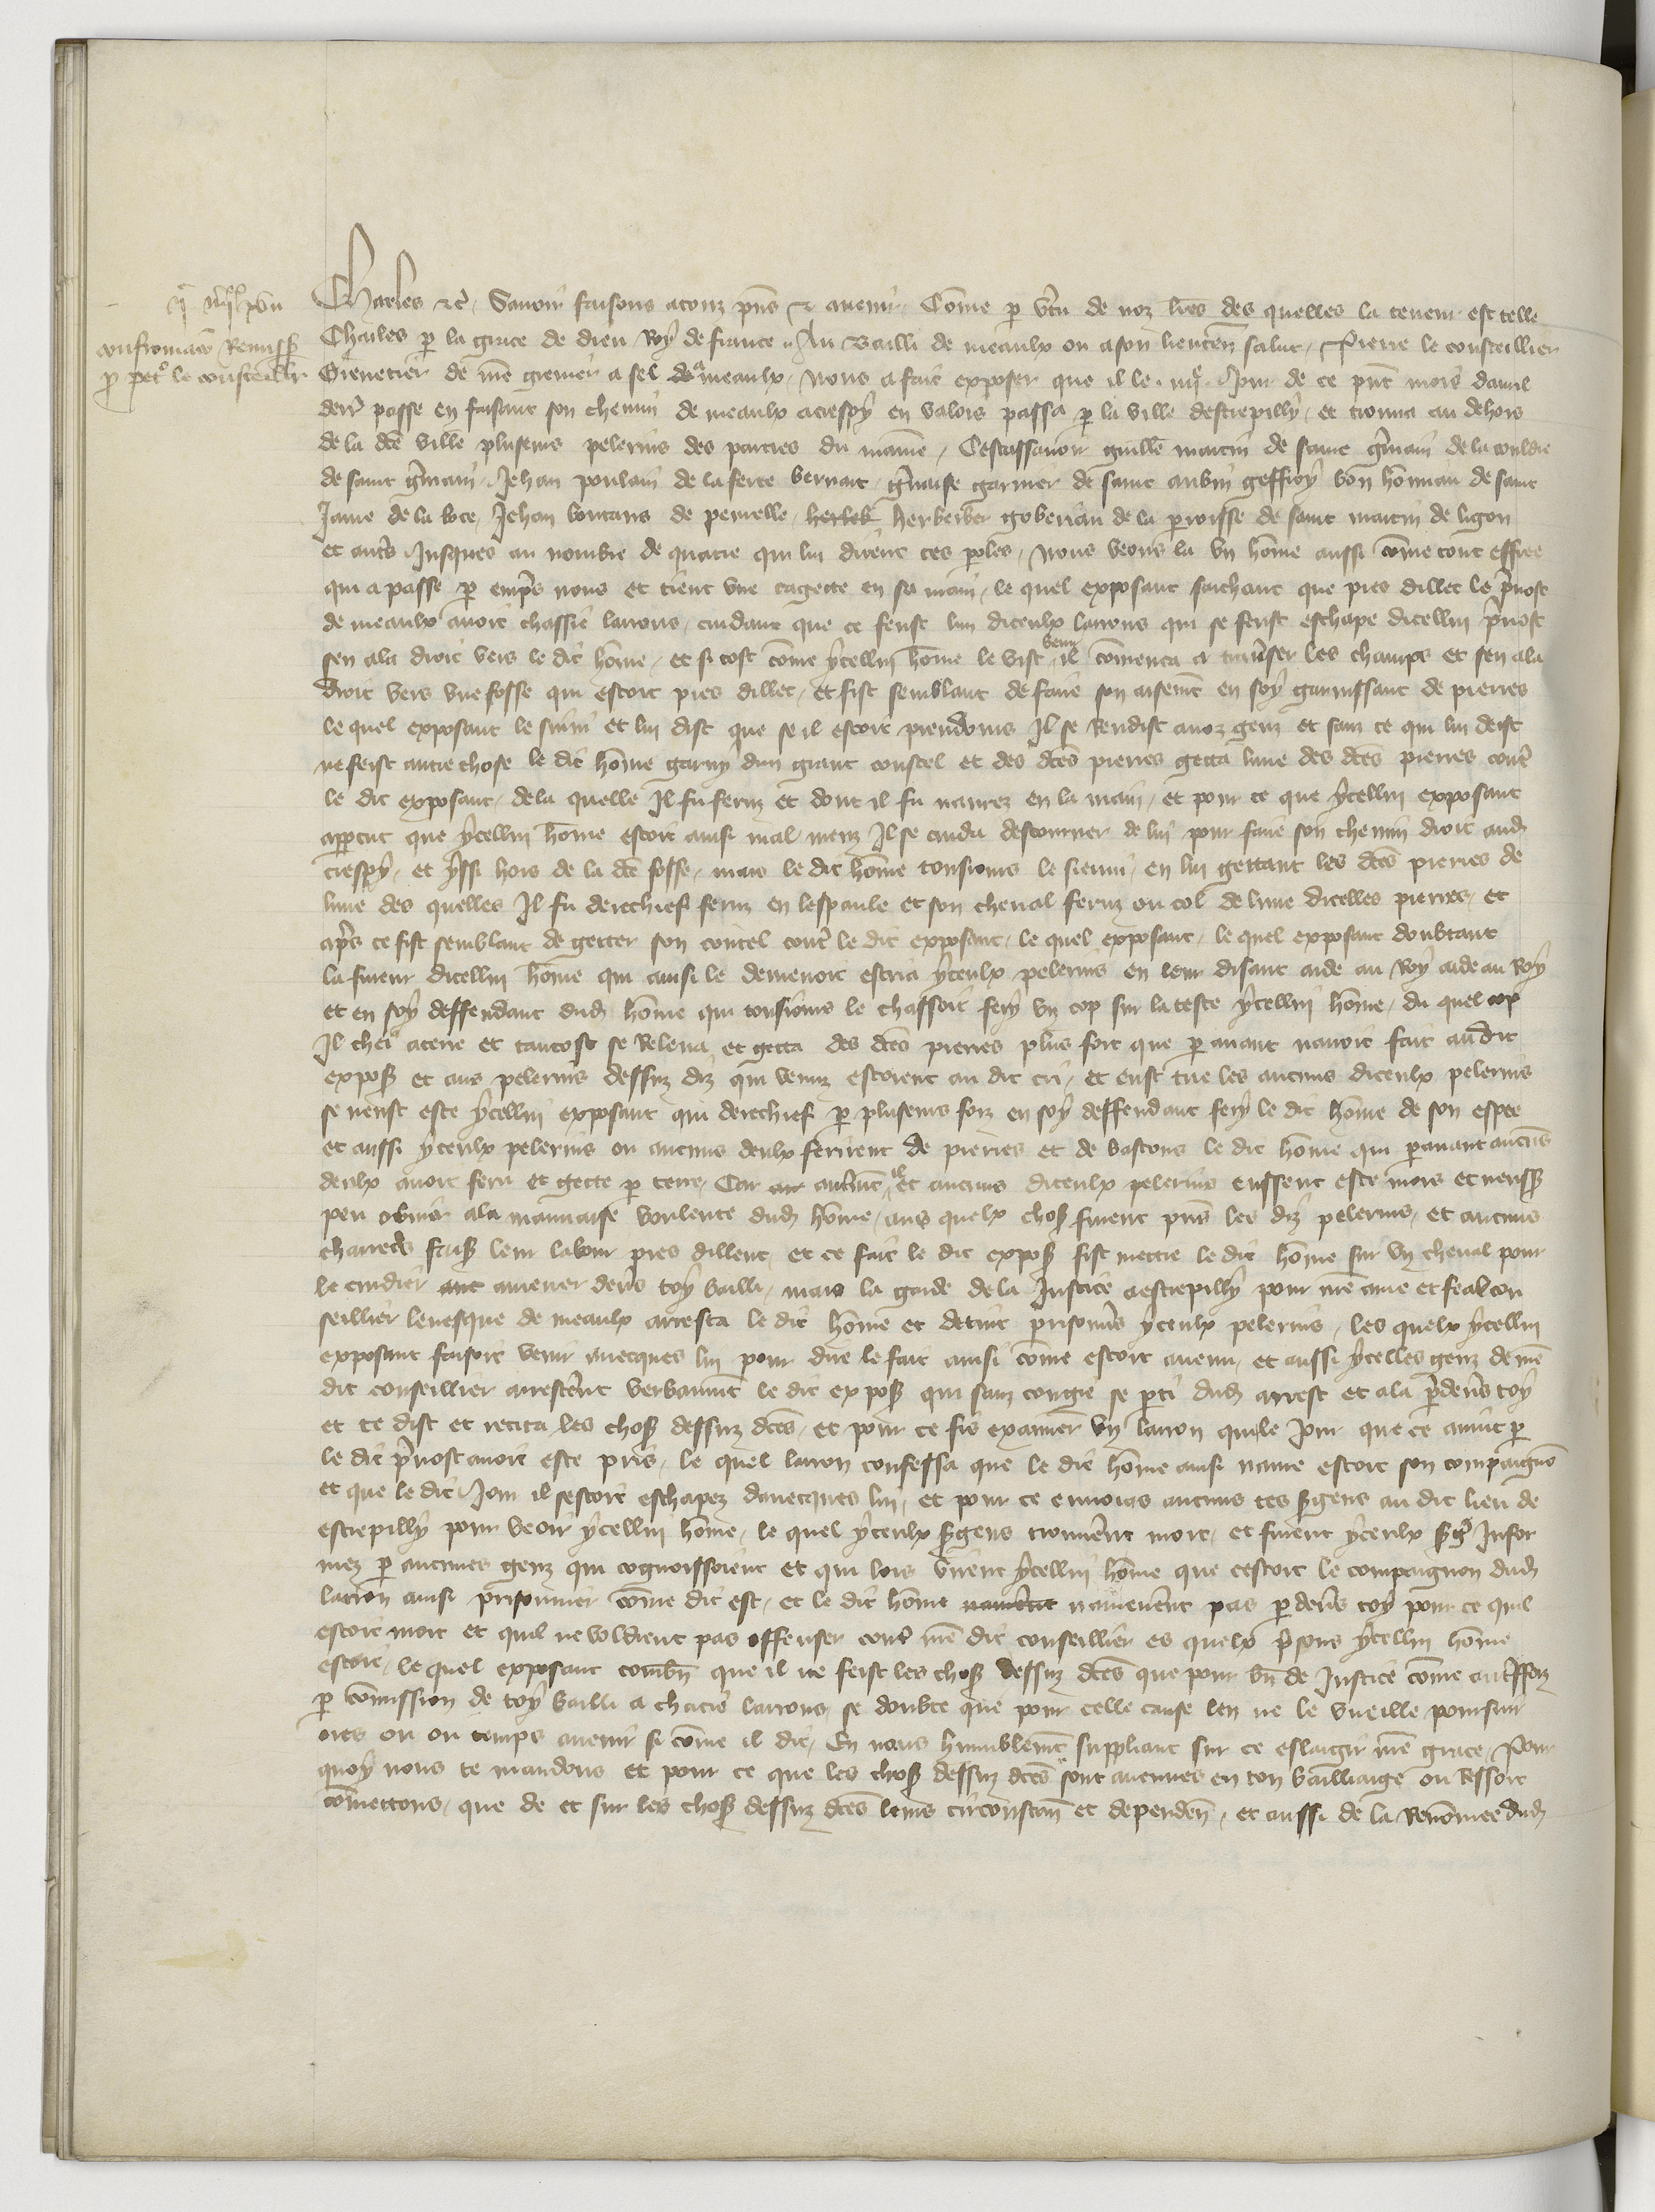 confirmacio Remiss
p petro le conseillier
Charles etc. Savoir faisons a touz pns et avenir. Come p vtu de noz lres des quelles la teneur est telle
Charles p la grace de dieu Roy de france. Au Bailli de meaulx ou a son lieuten salut. Pierre le conseillier
Grenetier de nre grenier a sel de meaulx, nous a fait exposer que il le iiije Jour de ce pnt mois davril
derr passe en faisant son chemin de meaulx a crespy en valois passa p la ville destrepilly, et trouva au dehors
de la dce ville plusieurs pelerins des parties du maine, Cestassavoir guille martin de saint gmain de la couldre
de saint gmain, Jehan poulain de la ferte bernart, gvaise garnier de saint aubin geffroy bon homian de saint
Jame de la Roce, Jehan voutans de peruelle, herbek herberber goberian de la proisse de saint martin de ligon
et auts Jusques au nombre de quatre qui lui dirent ces poles, nous veons la un home aussi come tout effree
qui a passe p empres nous et tient une cagette en sa main, le quel exposant saichant que pres dillec le pvost
de meaulx avoit chassie larrons, cuidant que ce feust lun diceulx larrons qui se feust eschape dicellui pvost
sen ala droit vers le dit home, et si tost come ycellui home le vist venir il comenca a traverser les champs et sen ala
droit vers une fosse qui estoit pres dillec, et fist semblant de faire son aisemt en soy garnissant de pierres
le quel exposant le suivi et lui dist que se il estoit preudoms Il se Rendist a noz genz et sanz ce qui lui deist
ne feist autre chose le dit home garny dun grant coustel et des dces pierres getta lune des dces pierres cont
le dit exposant, de la quelle Il fu feruz et dont il fu navrez en la main, et pour ce que ycellui exposant
apperceut que ycellui home estoit ainsi mal menz Il se cuida destourner de lui pour faire son chemin droit aud
crespy, et yssi hors de la dce fosse, mais le dit home tousiours le sieuvi, en lui gettant les dces pierres de
lune des quelles Il fu derechief feruz en lespaule et son cheval feruz ou col de lune dicelles pierres, et
aprs ce fist semblant de getter son coutel cont le dit exposant, le quel exposant, le quel exposant doubtant
la fureur dicellui home qui ainsi le demenoit escria yceulx pelerins en leur disant aide au Roy aide au Roy
et en soy deffendant dud home qui tousiours le chassoit fery un cop sur la teste ycellui home, du quel cop
Il chei a terre et tantost se Releva et getta des dces pierres plus fort que p avant navoit fait au dit
expos et aus pelerins dessuz diz qui venuz estoient au dit cri, et eust tue les aucuns diceulx pelerins
se neust este ycellui exposant qui derechief p plusieurs foiz en soy deffendant fery le dit home de son espee
et aussi yceulx pelerins ou aucuns deulx ferirent de pierres et de bastons le dit home qui pavant aucuns
deulx avoit feru et gecte p terre, Car autremt il et aucuns diceulx pelerins eussent este mors et neuss
peu obvier a la mauvaise voulente dud home, aus quelx chos furent pns les diz pelerins, et aucuns
charretrs fais leur labour pres dillenc, et ce fait le dit expos fist mettre le dit home sur un cheval pour
le cuidier amener devs toy bailli, mais la garde de la Justice destrepilly pour nre ame et feal con
seillier levesque de meaulx arresta le dit home et detint prisonnrs yceulx pelerins, les quelx ycellui
exposant faisoit venir avecques lui pour dire le fait ainsi come estoit avenu, et aussi ycelles genz de nre
dit conseillier arresterent verbaumt le dit expos qui sanz congie se pti dud arrest et ala pdevs toy
et te dist et recita les chos dessuz dces, et pour ce fis examiner un larron qui le jour que ce avint p
le dit pvost avoit este pris, le quel larron confessa que le dit home ainsi navre estoit son compaignon
et que le dit Jour il sestoit eschapez davecques lui, et pour ce envoias aucuns tes sgens au dit lieu de
estrepilly pour veoir ycellui home, le quel yceulx sgens trouvent mort, et furent yceulx sgs Infor
mez p aucunes genz qui cognoissoient et qui lors virent ycellui home que cestoit le compaignon dud
larron ainsi prisonnier come dit est, et le dit home namenerent pas p devs toy pour ce quil
estoit mort et quil ne voldrent pas offenser cont nre dit conseillier es quelx prsons ycellui home
estoit, le quel exposant combn que il ne feist les chos dessuz dces que pour bn de Justice come autreffoiz
p comission de toy bailli a chacie larrons, se doubte que pour celle cause len ne le vueille poursuir
ores ou ou temps avenir si come il dit, En nous humblemt suppliant sur ce eslargir nre grace, Pour
quoy nous te mandons et pour ce que les chos dessuz dces sont avenues en ton bailliaige ou Ressort
comettons, que de et sur les chos dessuz dces leurs circonstan et dependen, et aussi de la Renomee dud